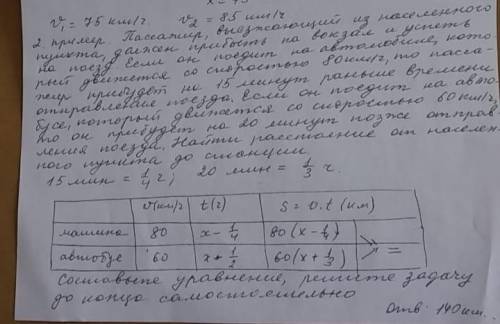 v₁ = 75 км/г. v₂ = 85 км/г
2. пример. Пассажир, выезжающий из населенного
пункта, должен прибыть на вокзал и успеть
на поезд. Если он поедит на автомобиле, кото-
рый движется со скоростью 80 км/г, то пасса-
жир прибудет на 15 минут раньше времени
отправления поезда. Если он поедит на авто-
бусе, который движется со скоростью 60 км/г,
то он прибудет на 20 минут позже отправ-
ления поезда. Найти расстояние от населен-
ного пункта до станции.
15 мин = 1/4 г; 20 мин = 1/3 г.
v(км/г) t(г) S = v.t (км)
машина 80 x - 1/4 80(x - 1/4)
автобус 60 x + 1/2 60(x + 1/3) =
Составьте уравнение, решите задачу
до конца самостоятельно
Отв: 140 км.